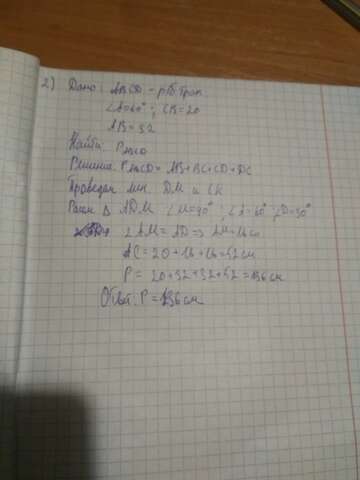 2) Дано: ABCD - р/б трап.
∠A=60° ; CB=20
AB=32
Найти PABCD
Решение. PABCD = AB+BC+CD+DC
Проведем DM и CK
Рассм Δ ADM ∠M=90° ; ∠A=60° ; ∠D=30°
2AM=AD => AM=16см
AC=20+16+16=52см
P= 20+32+32+52=136см
Ответ: P=136см